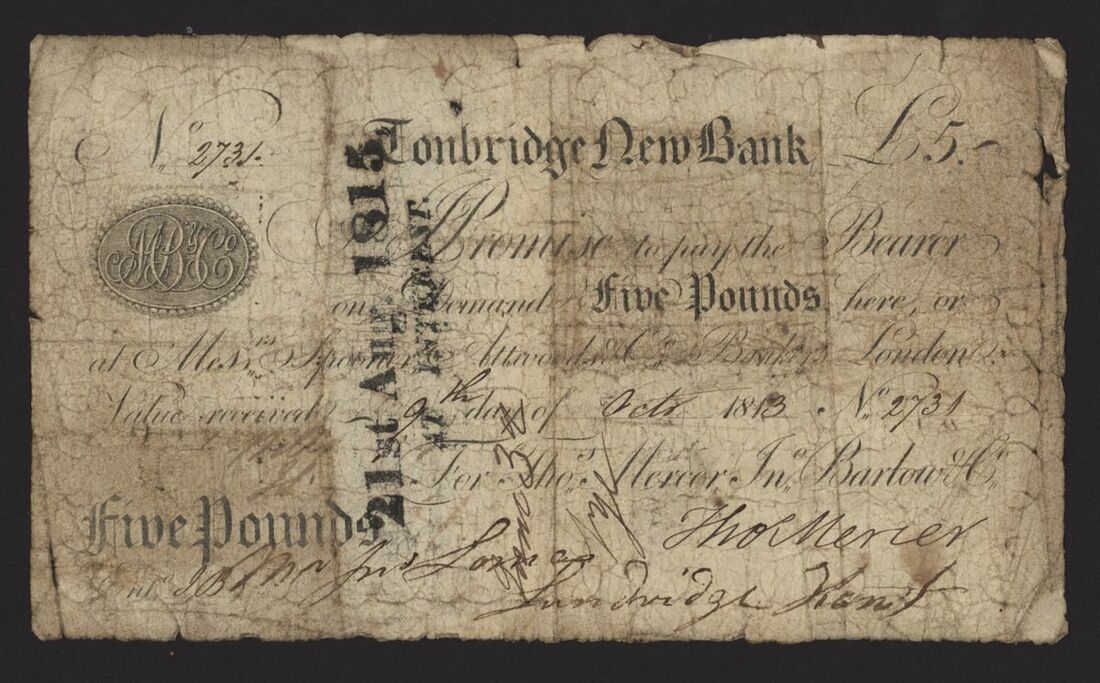 No. 2731. Tonbridge New Bank £5.-
MB & Co
I Promise to pay the Bearer
on Demand Five Pounds here, or
at Messrs. Spooner Attwoods & Co. Bankers London
Value received 9th day of Octr 1813. No. 2731
For Thos. Mercer, Jno. Barlow & Co.
Five Pounds Thos Mercer
Mr Jno
Kent
21st 1815
AT